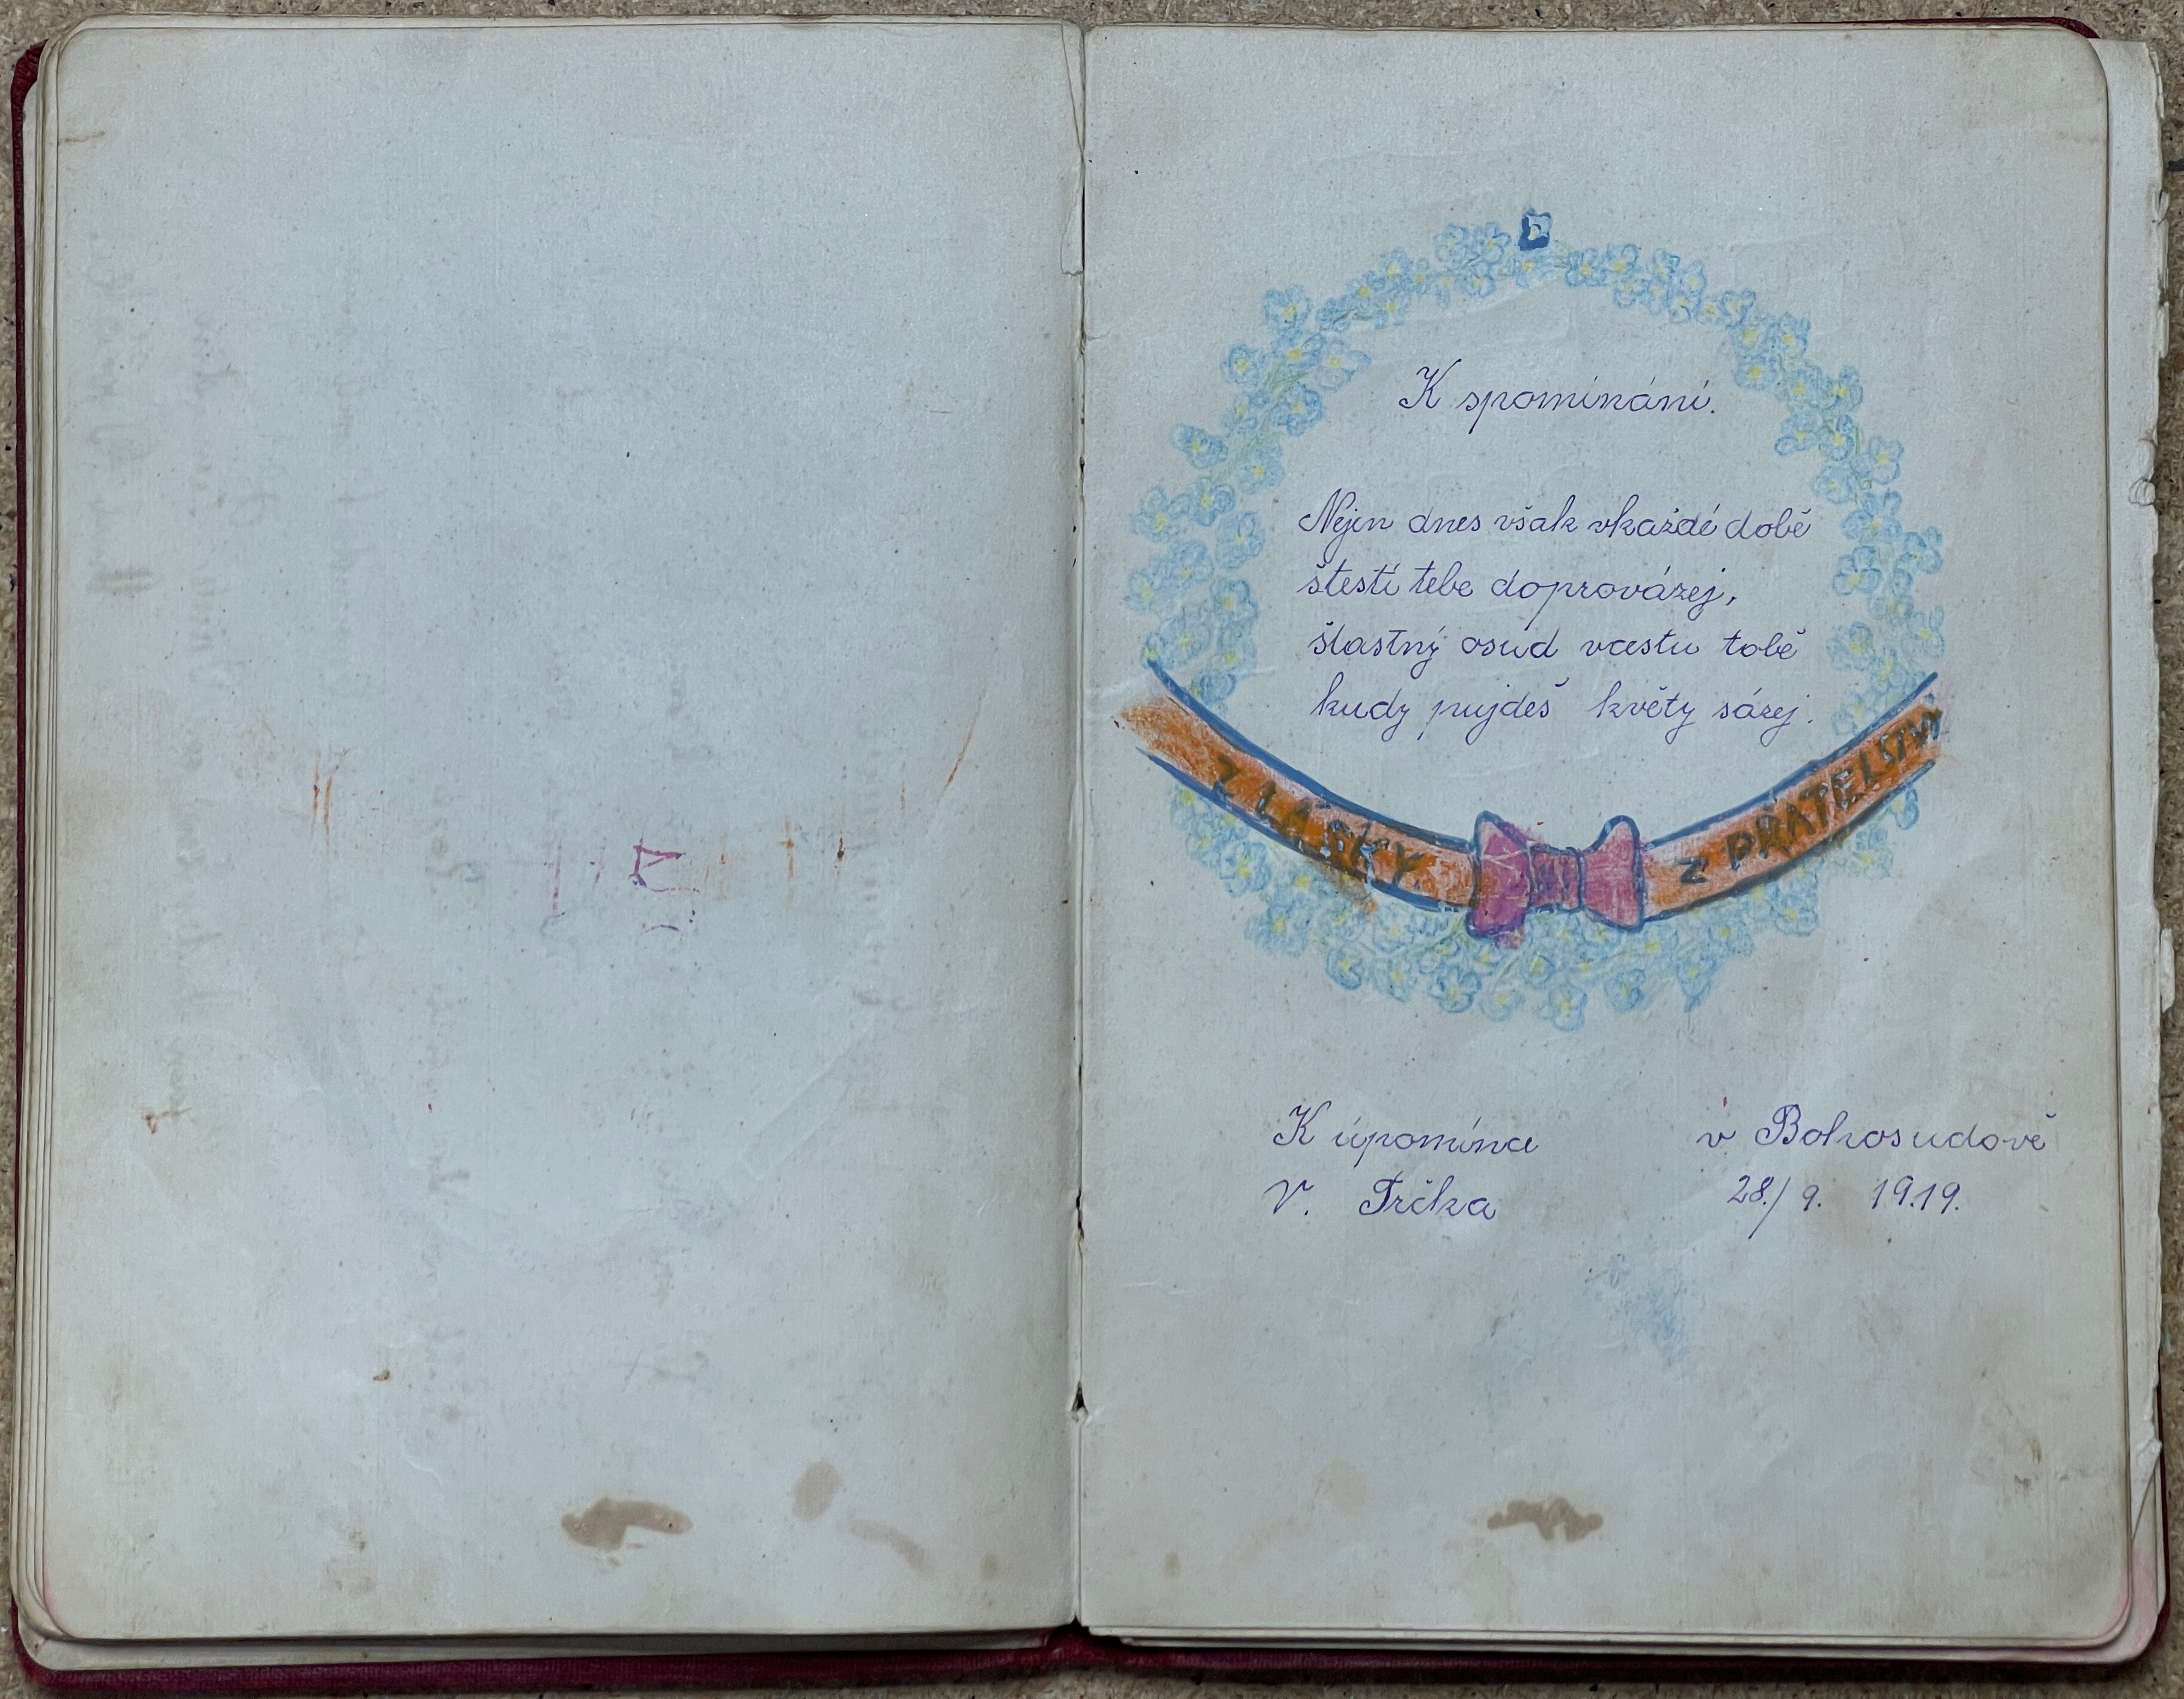 K spomínání.
Nejen dnes však vkaždé době
štestí tebe doprovázej,
šlastný osud vcestu tobě
kudy pujdeš květy sázej.
Z LÁSKY. Z PŘÁTELSTVÍ
K úpomínce v Bohosudově
V. Trčka 28./9. 1919.